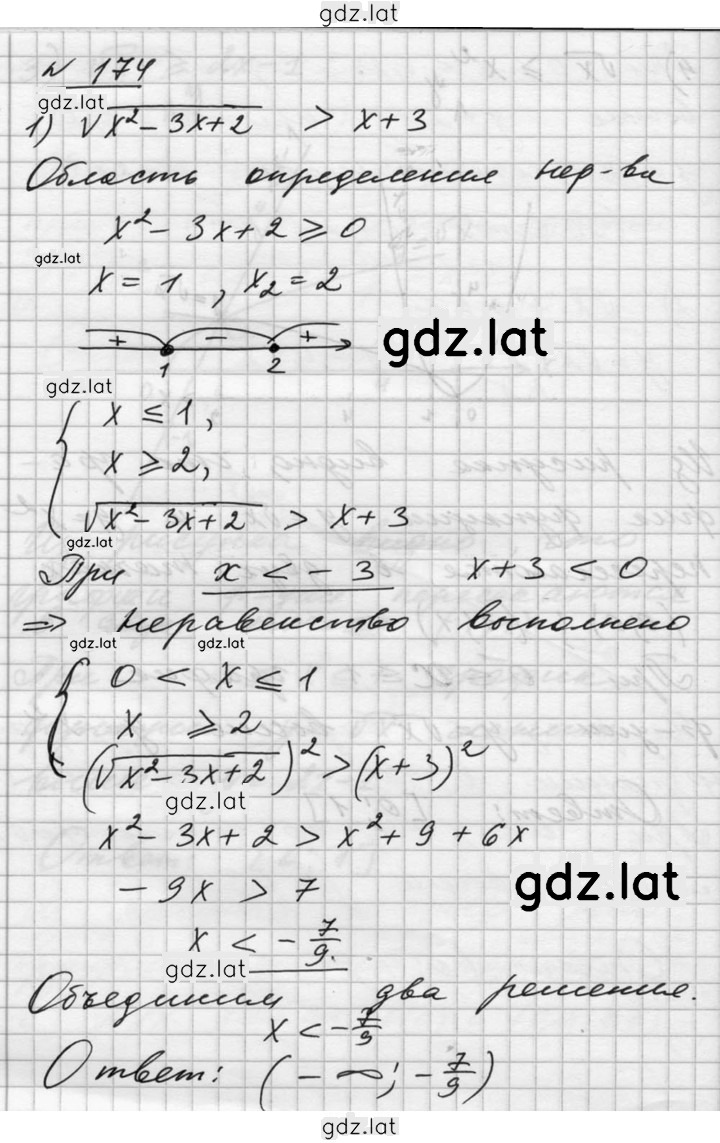 gdz.lat
N 174
gdz.lat
1) √(x² - 3x + 2) > x + 3
Область определения нер-ва
x² - 3x + 2 ⩾ 0
gdz.lat
x = 1 , x₂ = 2
+ - +
gdz.lat
1 2
gdz.lat
x ⩽ 1,
x ⩾ 2,
√(x² - 3x + 2) > x + 3
gdz.lat
При x < - 3 x + 3 < 0
⇒ неравенство выполнено
gdz.lat gdz.lat
0 < x ⩽ 1
x ⩾ 2
(√(x² - 3x + 2))² > (x + 3)²
gdz.lat
x² - 3x + 2 > x² + 9 + 6x
- 9x > 7
gdz.lat
x < - 7/9.
gdz.lat
Объединим два решения.
x < - 7/9
Ответ: (- ∞; - 7/9)
gdz.lat